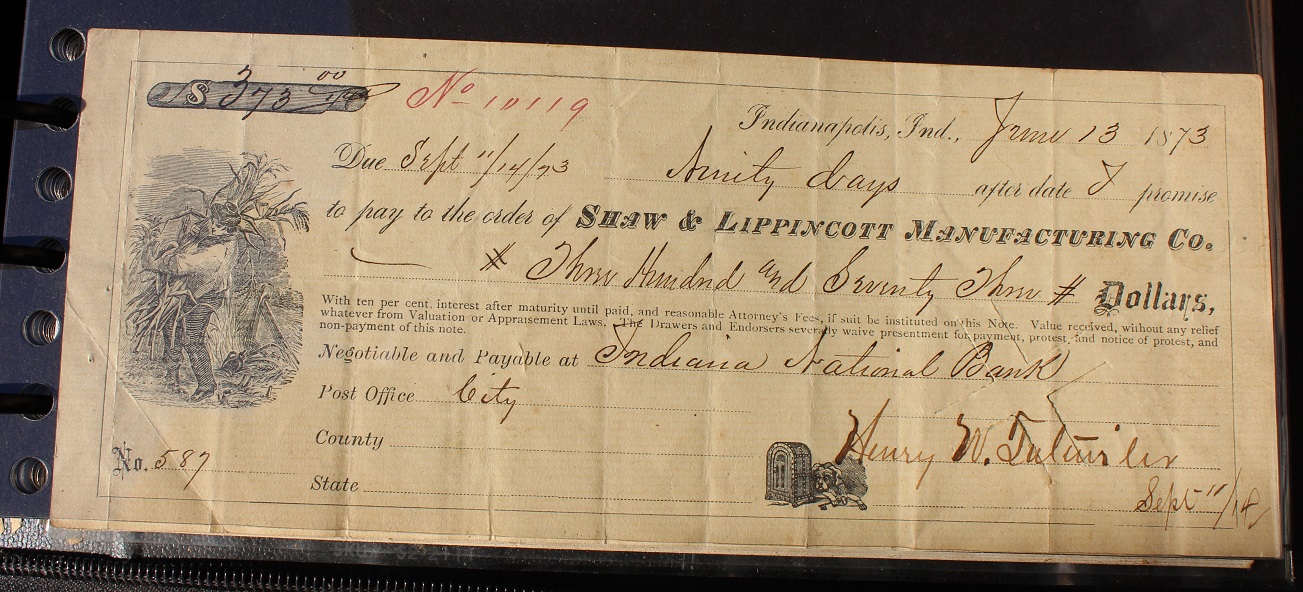 $ 373 00/100 No 10119
Indianapolis, Ind., June 13 1873
Due Sept 11/14/73 Ninity days after date I promise
to pay to the order of SHAW & LIPPINCOTT MANUFACTURING CO.
# Three Hundred and Seventy Three # Dollars,
With ten per cent. interest after maturity until paid, and reasonable Attorney's Fees, if suit be instituted on this Note. Value received, without any relief
whatever from Valuation or Appraisement Laws. The Drawers and Endorsers severally waive presentment for payment, protest and notice of protest, and
non-payment of this note.
Negotiable and Payable at Indiana National Bank
Post Office City
County
Henry W.
No. 587
State
Sept 11/14